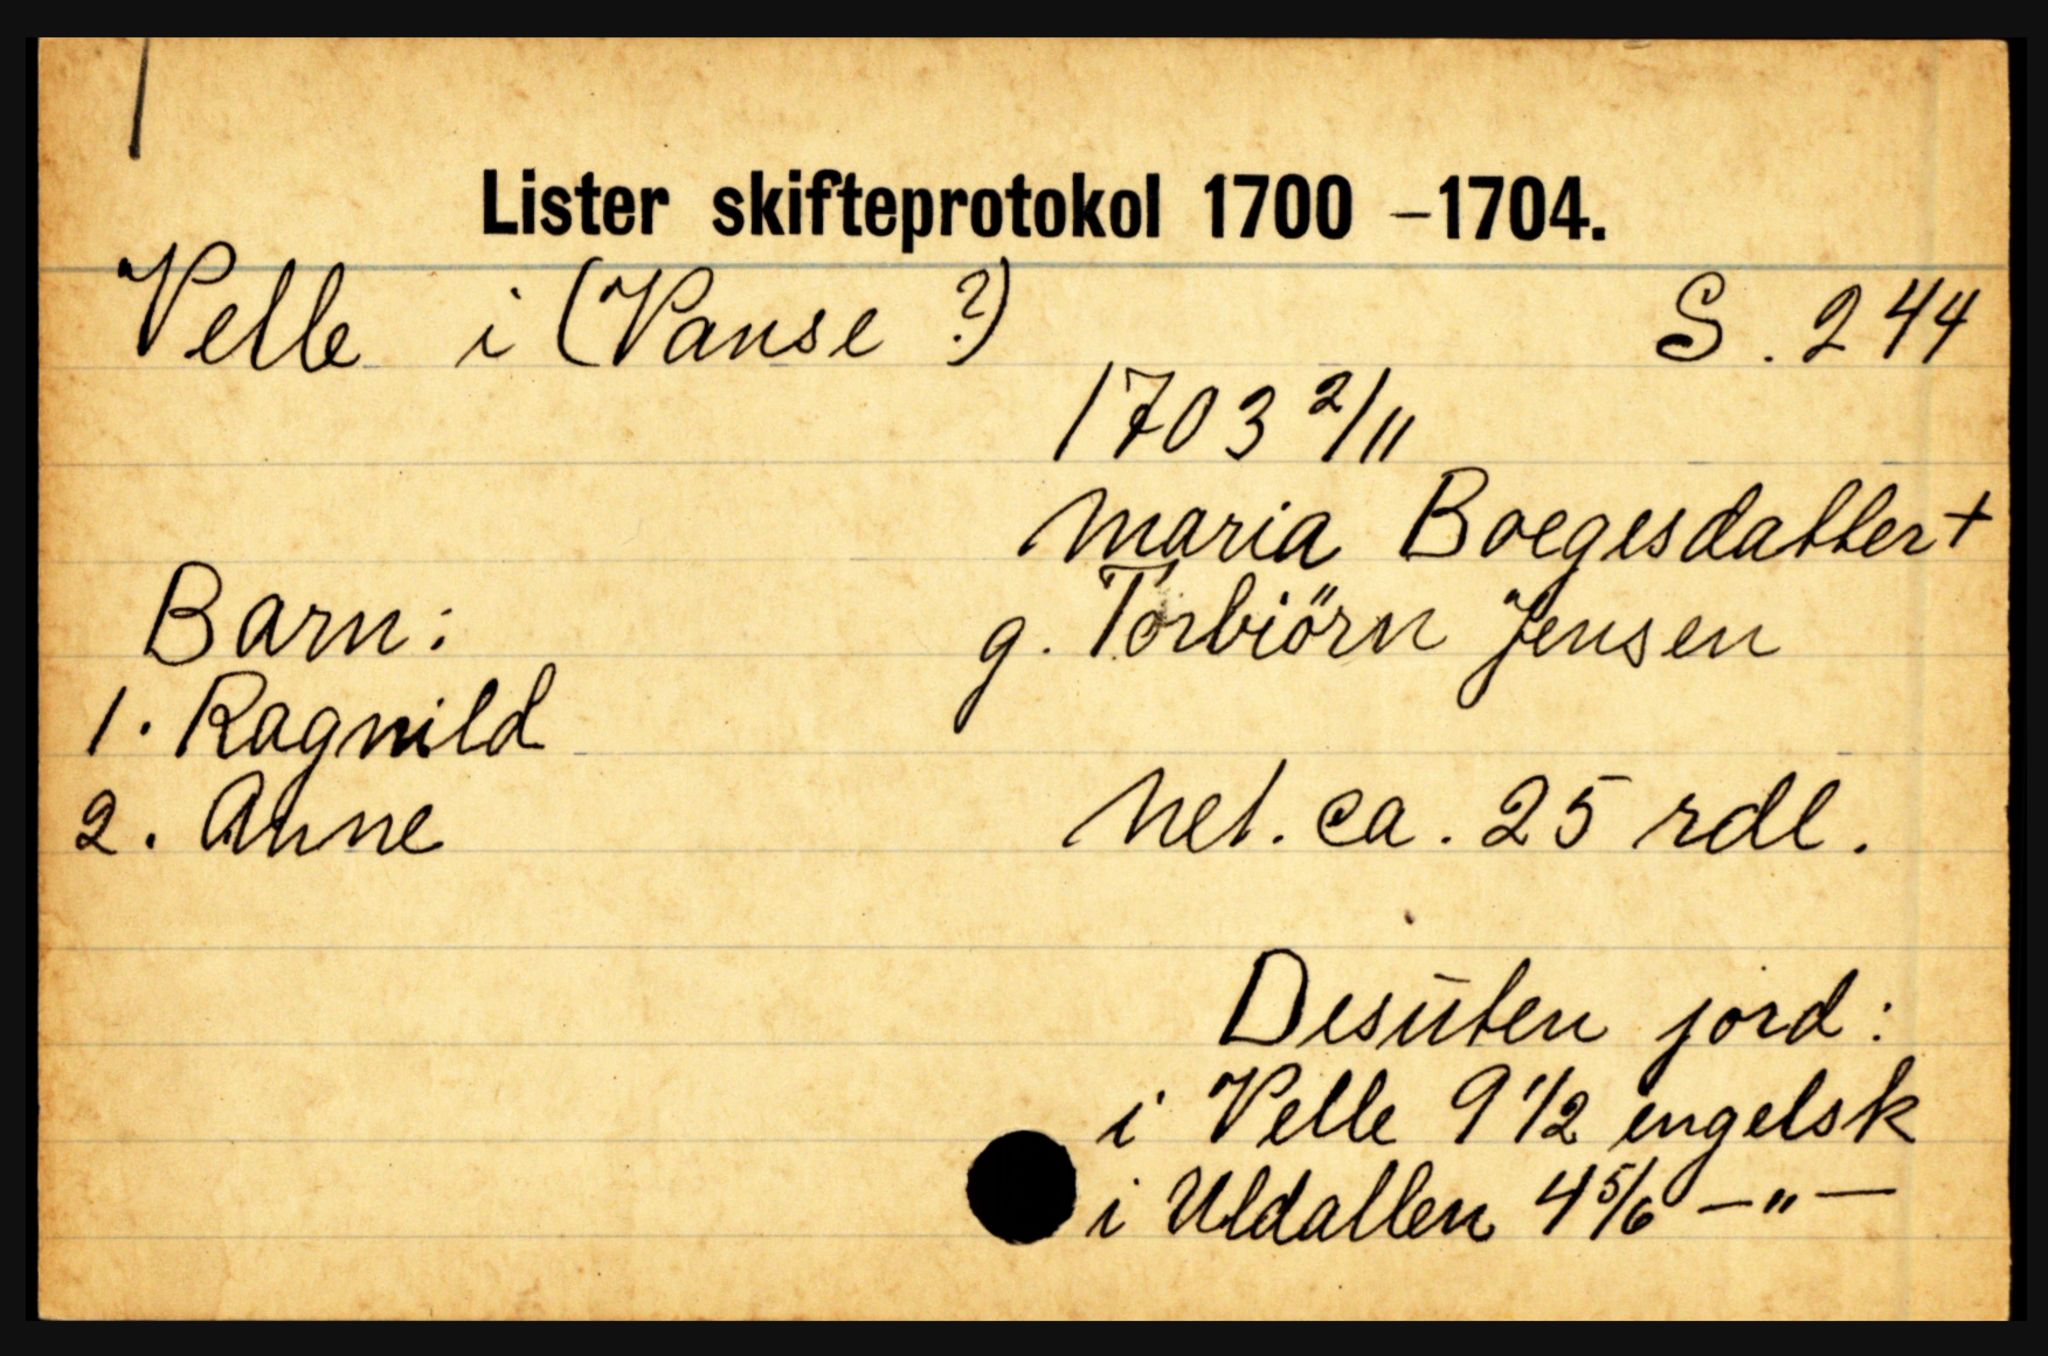 Lister skifteprotokol 1700 - 1704.
Velle i (Vanse ?) S. 244
1703 2/11
Maria Boegesdatter +
Barn: g. Torbiörn Jensen
1. Ragnild
2. Anne Net. ca. 25 rdl.
Desuten jord:
i Velle 9 1/2 engelsk
i Uldallen 4 5/6 — " —